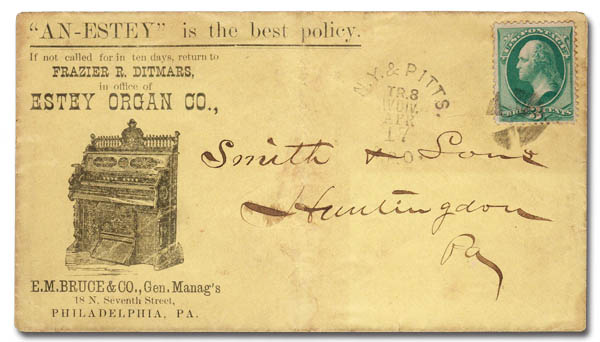 "AN-ESTEY" is the best policy.
If not called for in ten days, return to
FRAZIER R. DITMARS,
in office of
ESTEY ORGAN CO.,
E.M. BRUCE & CO., Gen. Manag's
18 N. Seventh Street,
PHILADELPHIA, PA.
N.Y. & PITTS.
TR. 8
APR
17
U.S. POSTAGE
3 CENTS
Smith & Sons
Huntingdon
Pa